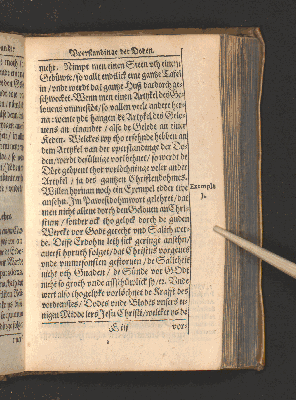 Vperstandinge der Doden.
mehr. Nimpt men einen Steen vth einem
Gebüwte / so vallt endtlick eine gantze Tafel
in / vnde werdt dat gantze Huß dardorch ge-
schwecket. Wenn men einen Artykel des Ge-
louens vmmstött / so vallen veele andere her-
na: wente ydt hangen de Artykel des Gelo-
uens an einander / alse de Gelede an einer
Keden. Welckes wy tho ersehnde hebben an
dem Artykel van der vperstandinge der Do-
den / werdt desüluige vorlöchnet / so werdt de
Döre geöpent thor vorlöchninge veler ander
Artykel / ja des gantzen Christendohmes.
Willen hyrvan noch ein Exempel edder eine
ansehn. Im Pawestdohm wort gelehret / dat
men nicht alleine dorch den Gelouen an Chri-
stum / sonder ock tho gelyck dorch de guden
Wercke vor Godt gerecht vnd Salich wer-
de. Disse Erdohm leth sick geringe ansehn /
auerst hyruth folget / dat Christus vorgeues
vnde vmmesonsten gestoruen / de Salicheit
nicht vth Gnaden / de Sünde vor GOdt
nicht so groth vnde affschüwlick sy / ꝛc. Vnde
wert also thogelyke vorlöchnet de Krafft des
vordenstes / Dodes vnde Blodes vnsers ei-
nigen Middelers Jesu Christi / welcker vs de
Exempla
1.
vor-